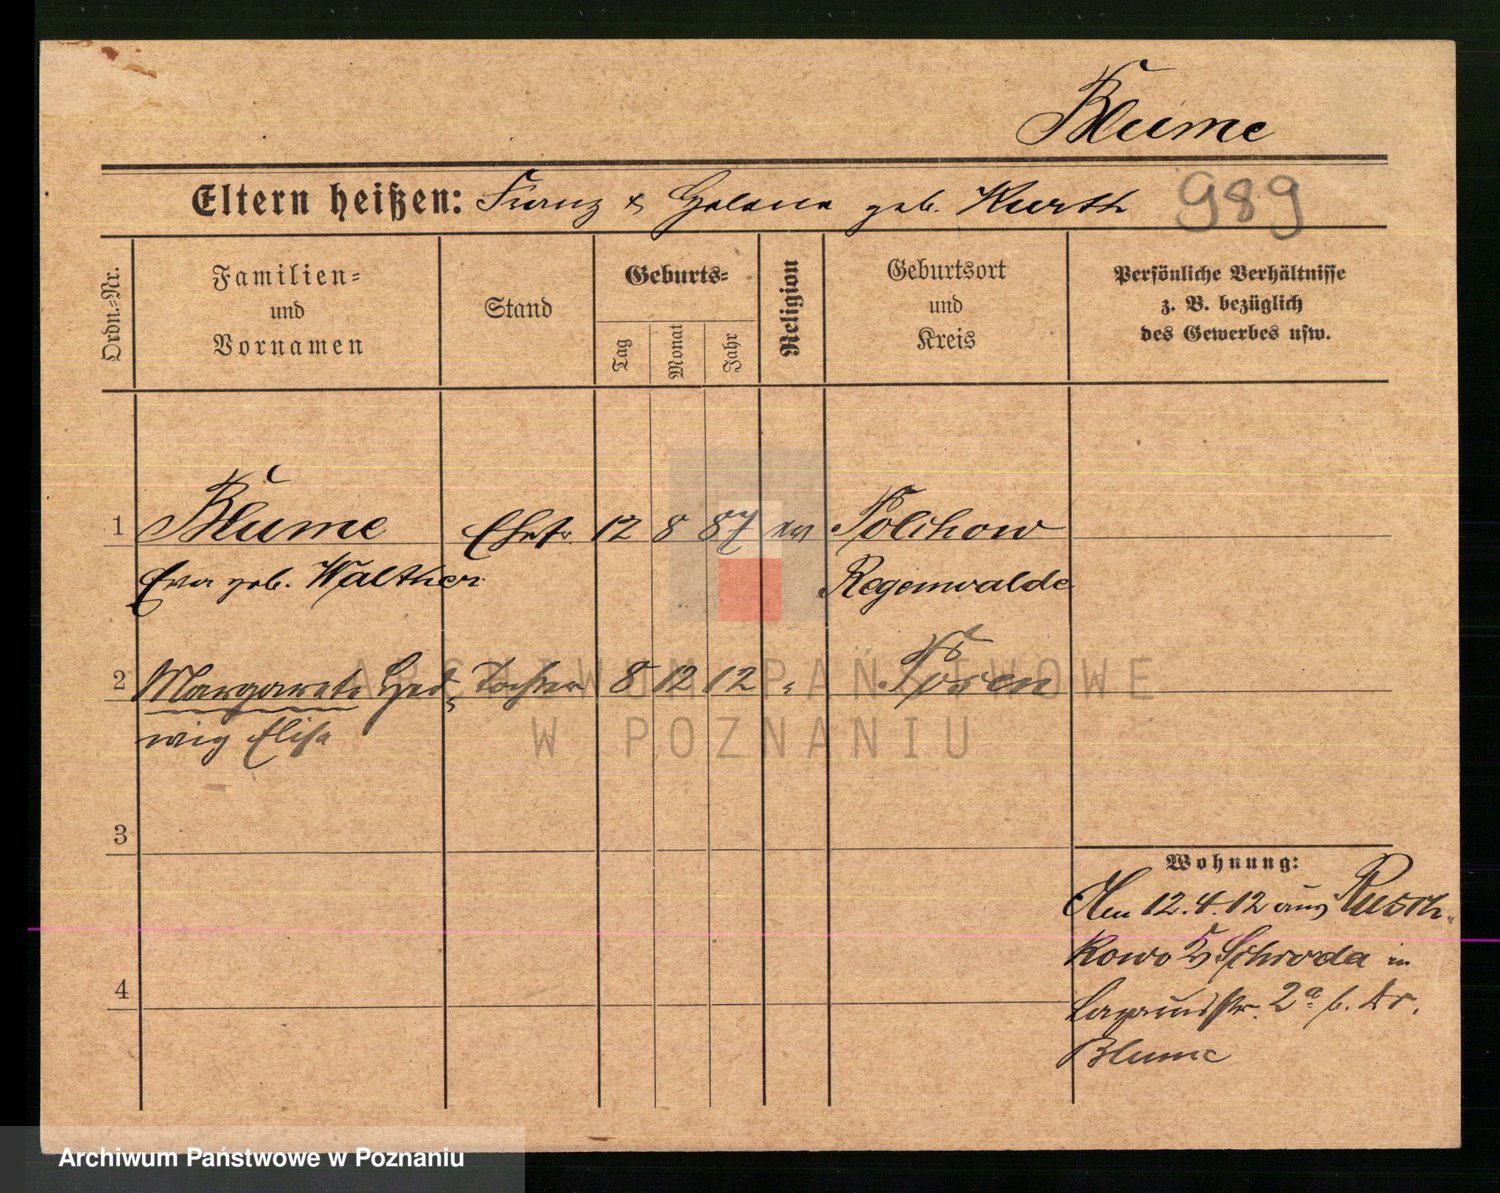 Blume
Eltern heißen: Franz & Helene geb. Kurth 989
Ordn.-Nr.
Familien-
und
Vornamen
Stand
Geburts-
Tag
Monat
Jahr
Religion
Geburtsort
und
Kreis
Persönliche Verhältnisse
z. B. bezüglich
des Gewerbes usw.
1 Blume Ehefr. 12 8 87 ev Polchow
Eva geb. Walther Regenwalde
2 Margarete Hed- Tochter 8 12 12 " Posen
wig Elisa
3
4
Wohnung:
Am 12.4.12 aus Rusch-
kowo Schroda in
2a b. Dr.
Blume
ARCHIWUM PAŃSTWOWE
W POZNANIU
Archiwum Państwowe w Poznaniu